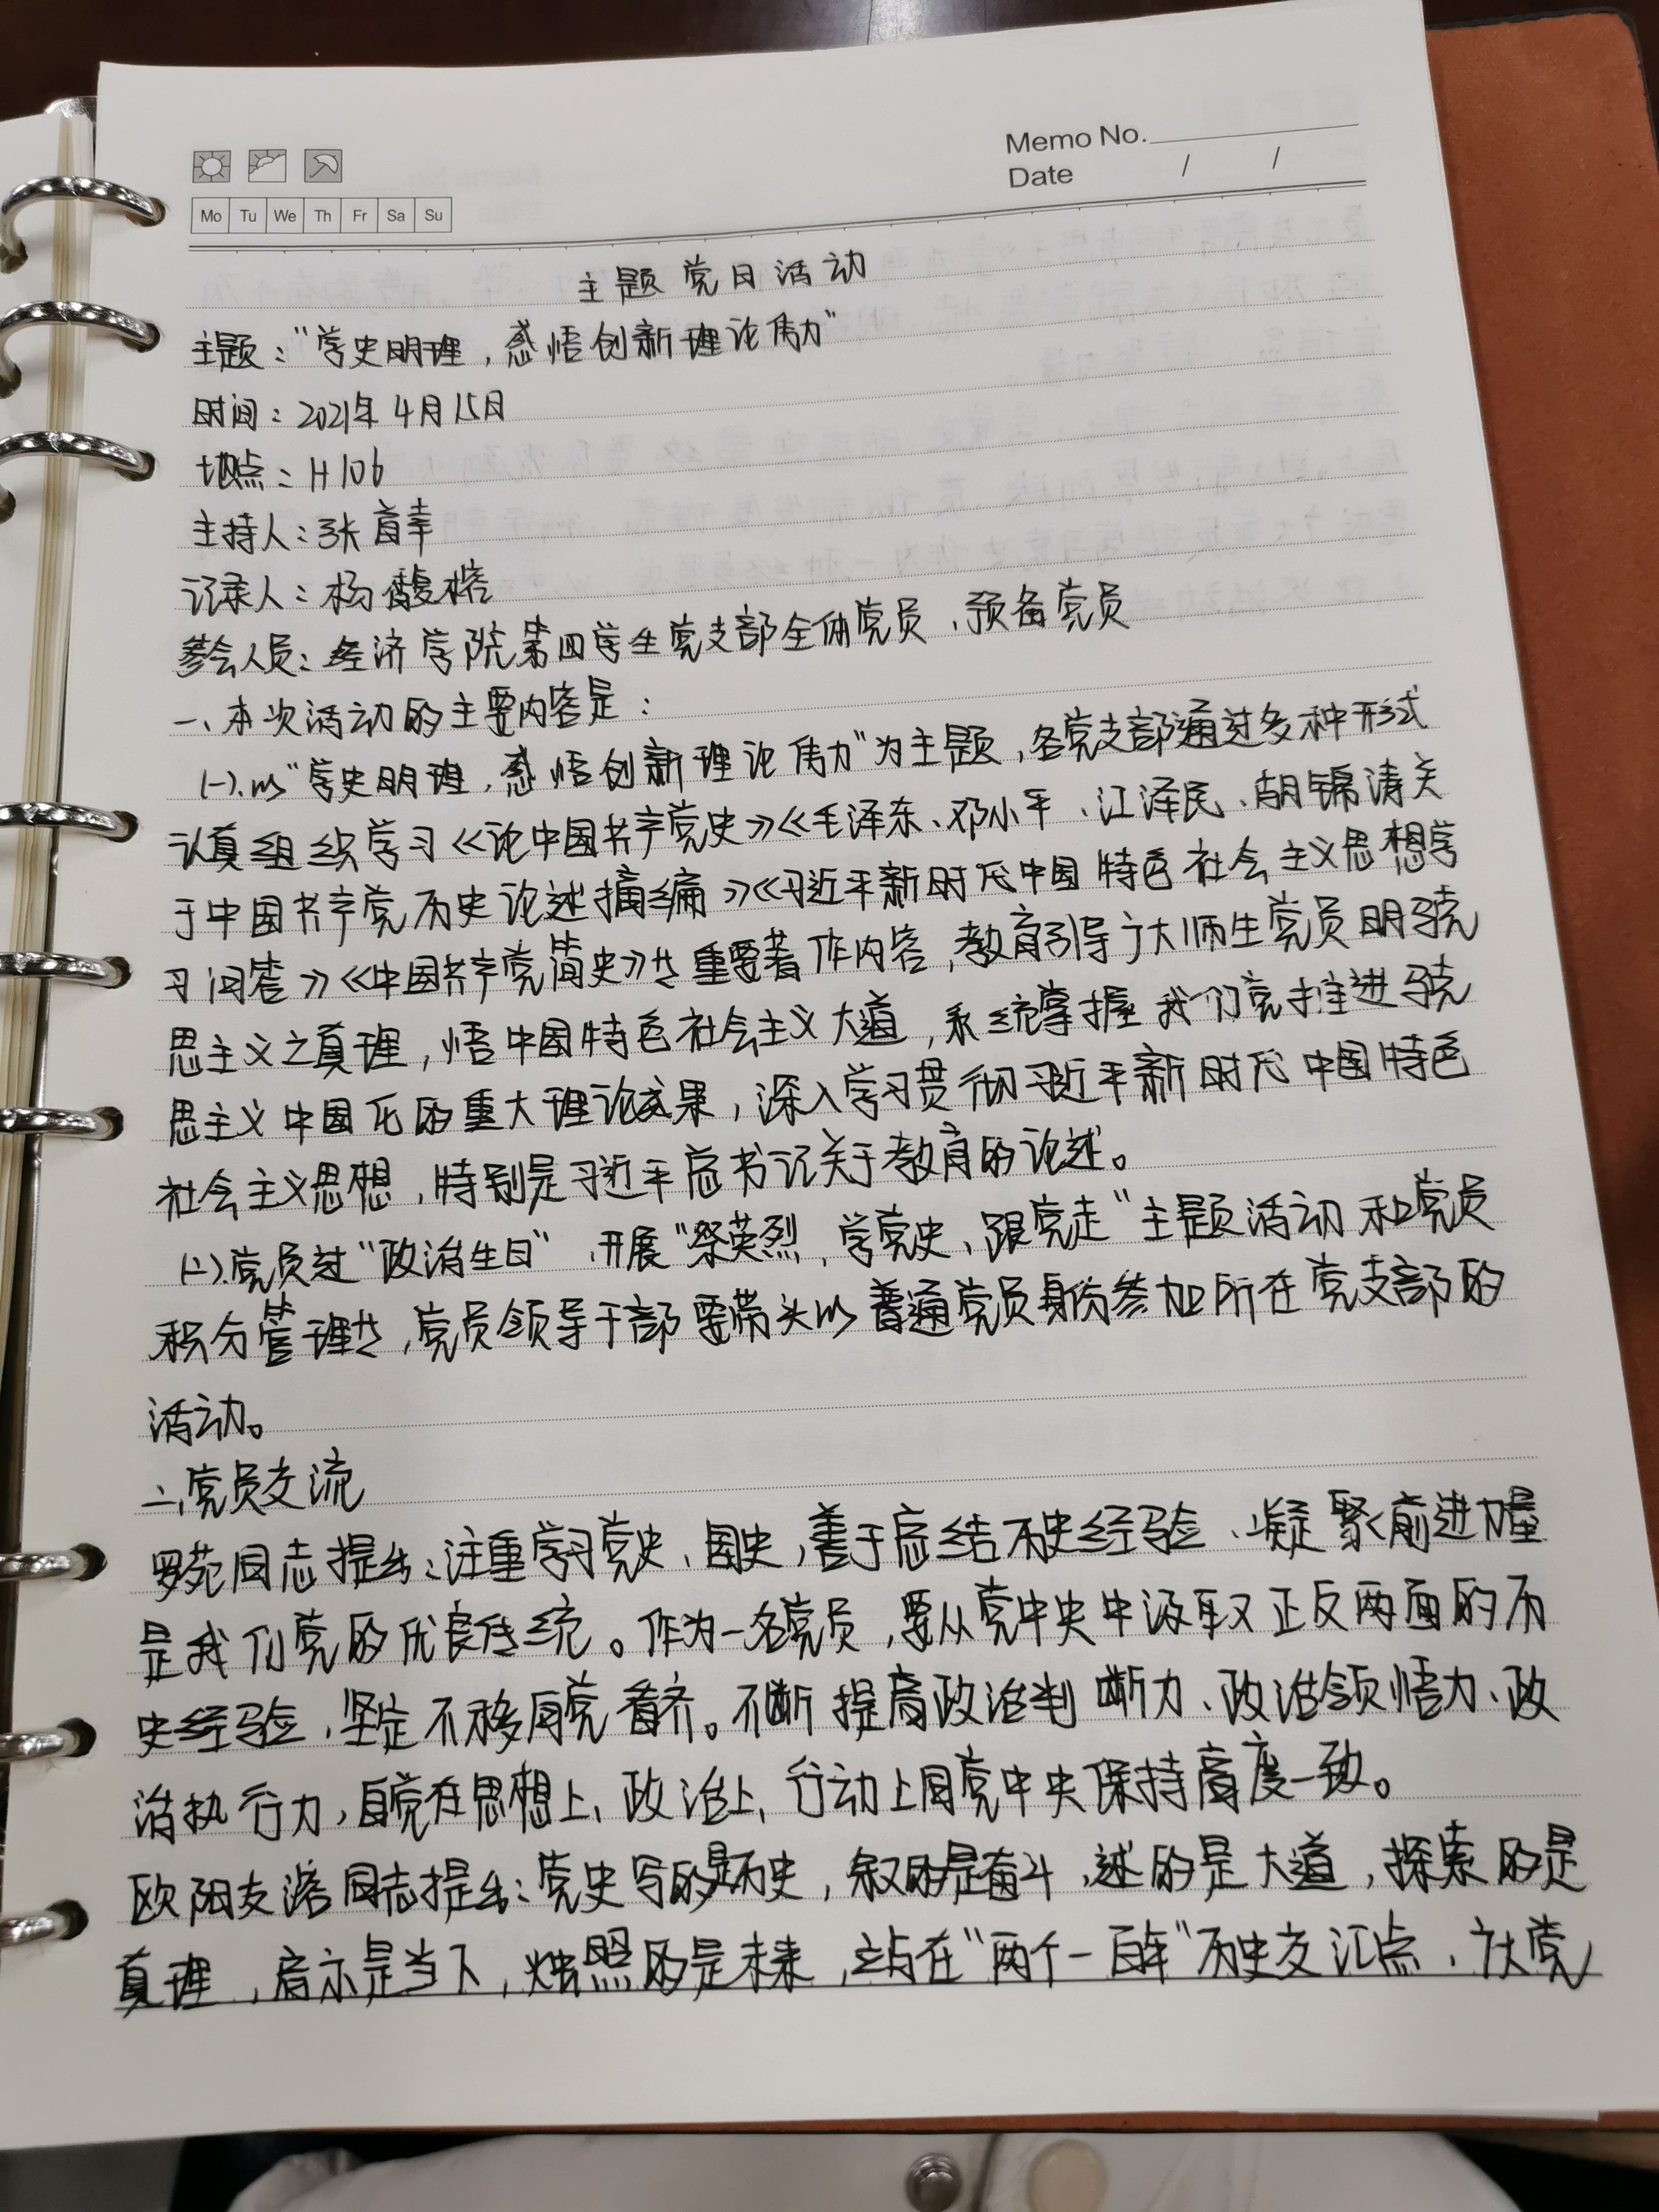 Memo No.
Date / /
Mo Tu We Th Fr Sa Su
主题党日活动
主题：“学史明理，感悟创新理论伟力”
时间：2021年4月15日
地点：H106
主持人：张首幸
记录人：杨馥榕
参会人员：经济学院第四学生党支部全体党员、预备党员
一、本次活动的主要内容是：
(一).以“学史明理，感悟创新理论伟力”为主题，各党支部通过多种形式
认真组织学习《论中国共产党史》《毛泽东、邓小平、江泽民、胡锦涛关
于中国共产党历史论述摘编》《习近平新时代中国特色社会主义思想学
习问答》《中国共产党简史》等重要著作内容，教育引导广大师生党员明马克
思主义之真理，悟中国特色社会主义大道，系统掌握我们党推进马克
思主义中国化的重大理论成果，深入学习贯彻习近平新时代中国特色
社会主义思想，特别是习近平总书记关于教育的论述。
(二).党员过“政治生日”、开展“祭英烈，学党史、跟党走”主题活动和党员
积分管理等，党员领导干部要带头以普通党员身份参加所在党支部的
活动。
二、党员交流
罗苑同志提出：注重学习党史、国史，善于总结历史经验、凝聚前进力量
是我们党的优良传统。作为一名党员，要从党中央中汲取正反两面的历
史经验，坚定不移向党看齐。不断提高政治判断力、政治领悟力、政
治执行力，自觉在思想上、政治上、行动上同党中央保持高度一致。
欧阳友 同志提出：党史写的是历史，叙的是奋斗，述的是大道，探索的是
真理，启示是当下，烛照的是未来，站在“两个一百年”历史交汇点，广大党